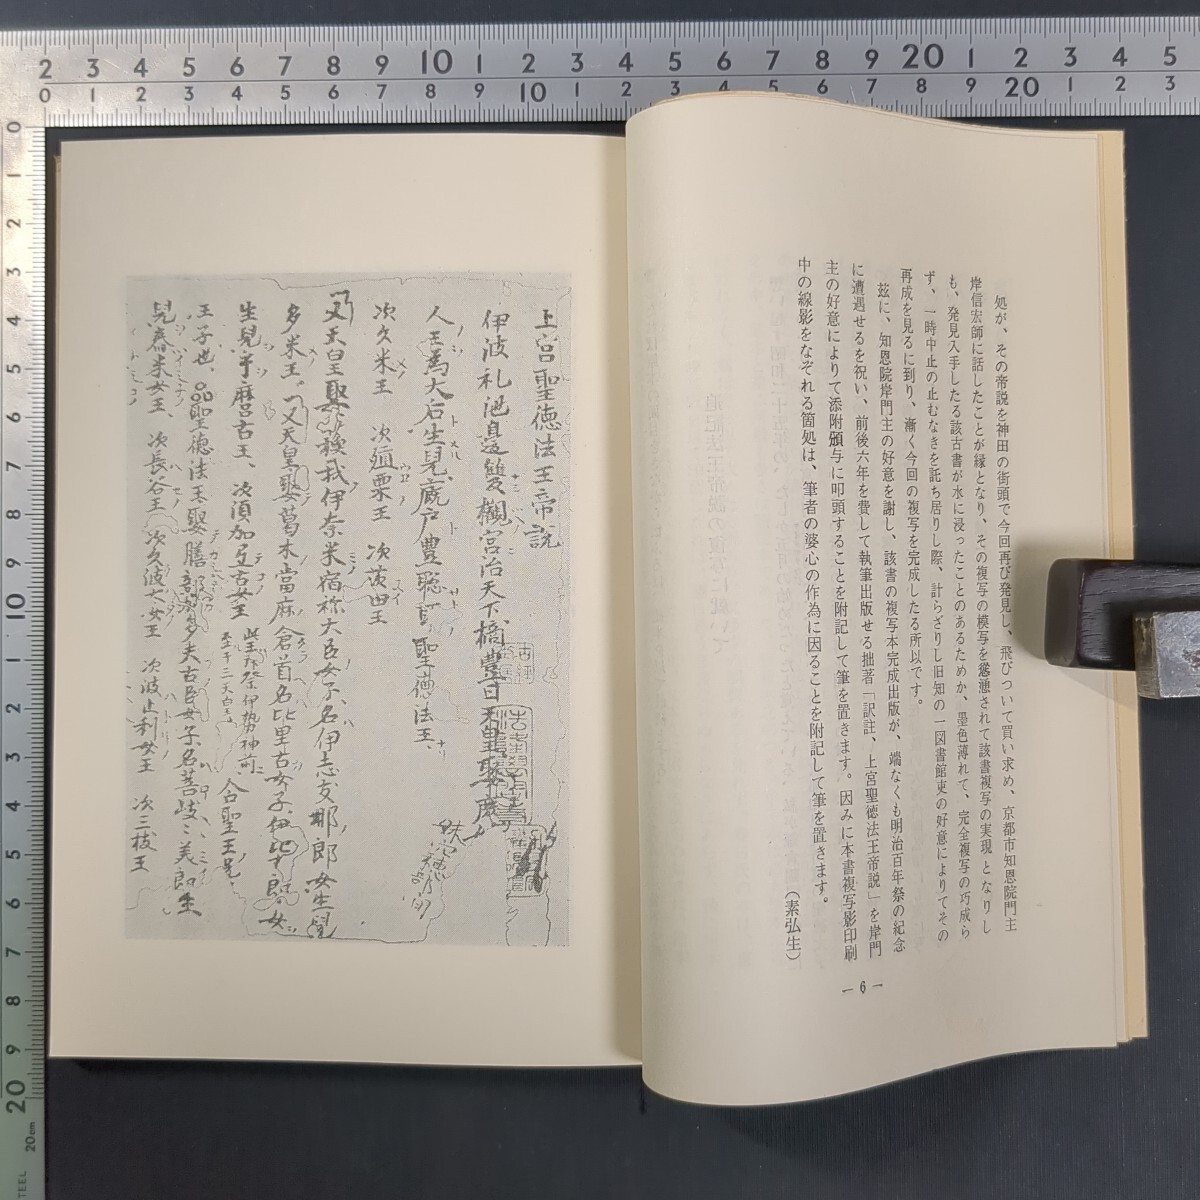 処が、その帝説を神田の街頭で今回再び発見し、飛びついて買い求め、京都市知恩院門主
岸信宏師に話したことが縁となり、その複写の模写を慫慂されて該書複写の実現となりし
も、発見入手したる該古書が水に浸ったことのあるためか、墨色薄れて、完全複写の巧成ら
ず、一時中止の止むなきを託ち居りし際、計らざりし旧知の一図書館吏の好意によりてその
再成を見るに到り、漸く今回の複写を完成したる所以です。
茲に、知恩院岸門主の好意を謝し、該書の複写本完成出版が、端なくも明治百年祭の紀念
に遭遇せるを祝い、前後六年を費して執筆出版せる拙著「訳註、上宮聖徳法王帝説」を岸門
主の好意によりて添附頒与に叩頭することを附記して筆を置きます。因みに本書複写影印刷
中の線影をなぞれる箇処は、筆者の婆心の作為に因ることを附記して筆を置きます。
（素弘生）
— 6 —
上宮聖徳法王帝説
伊波礼池邊雙槻宮治天下橘豊日天皇娶庶妹
人王為大后生兒厩戸豊聡耳聖徳法王、
次久米王 次殖栗王 次茨田王
又天皇娶蘇我伊奈米宿祢大臣女子名伊志支那郎女生兒
多米王、又天皇娶葛木當麻倉首名比里古女子伊比古郎女
生兒乎麻呂古王、次須加弖古女王
王子也、聖徳法王娶膳部加多夫古臣女子名菩岐々美郎女生
兒舂米女王、次長谷王 次久波太女王 次波止利女王 次三枝王